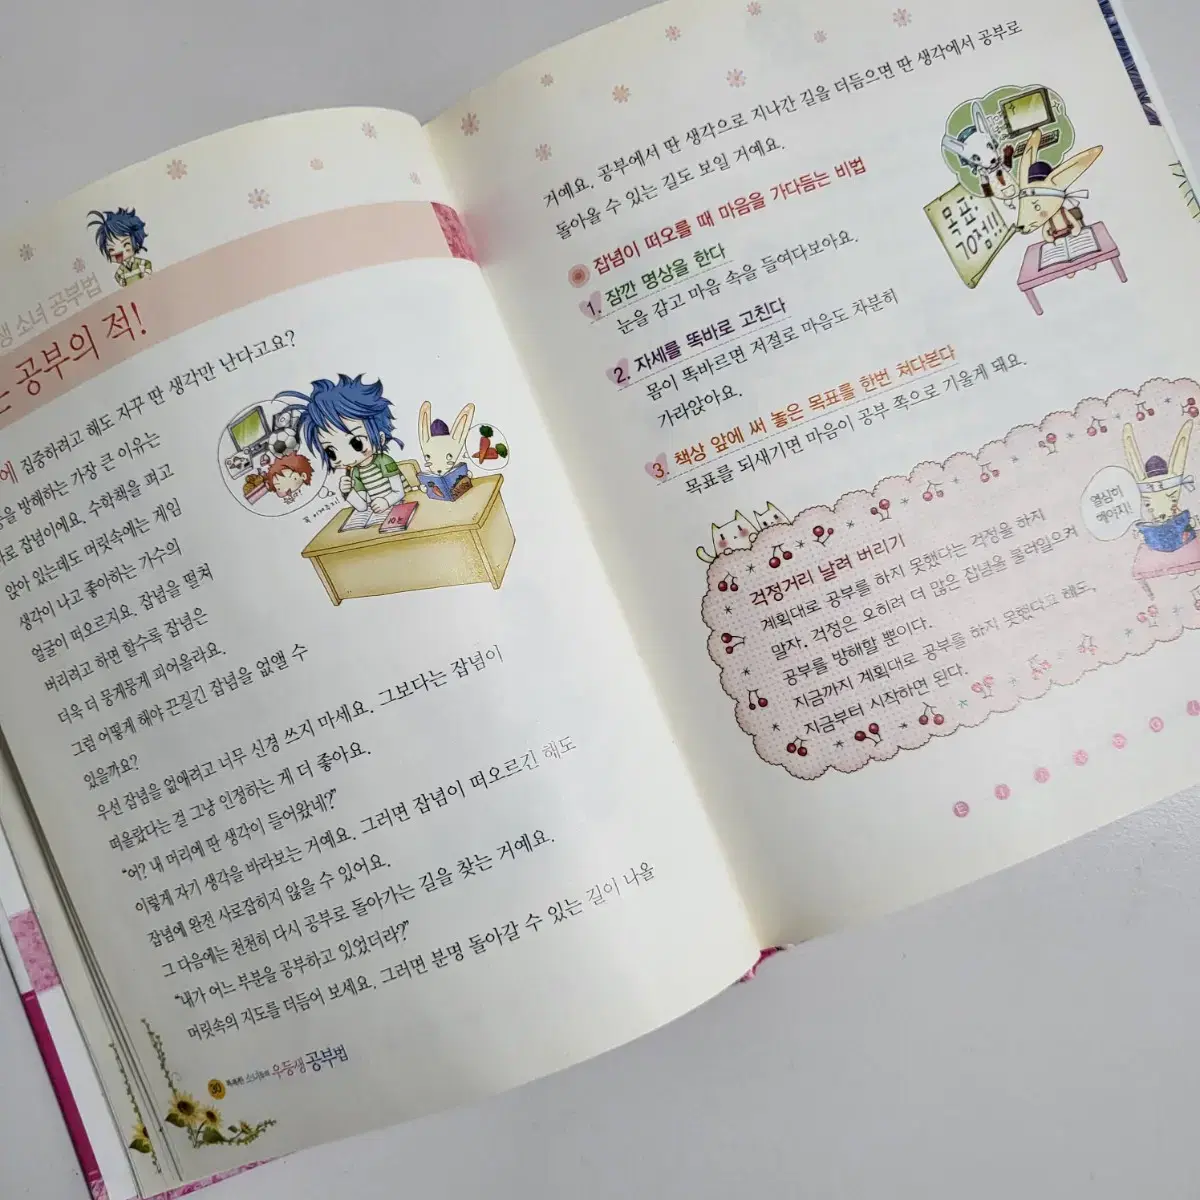 생 소녀 공부법
는 공부의 적!
에 집중하려고 해도 자꾸 딴 생각만 난다고요?
을 방해하는 가장 큰 이유는
바로 잡념이에요. 수학책을 펴고
앉아 있는데도 머릿속에는 게임
생각이 나고 좋아하는 가수의
얼굴이 떠오르지요. 잡념을 떨쳐
버리려고 하면 할수록 잡념은
더욱 더 뭉게뭉게 피어올라요.
그럼 어떻게 해야 끈질긴 잡념을 없앨 수
있을까요?
우선 잡념을 없애려고 너무 신경 쓰지 마세요. 그보다는 잡념이
떠올랐다는 걸 그냥 인정하는 게 더 좋아요.
“어? 내 머리에 딴 생각이 들어왔네?”
이렇게 자기 생각을 바라보는 거예요. 그러면 잡념이 떠오르긴 해도
잡념에 완전 사로잡히지 않을 수 있어요.
그 다음에는 천천히 다시 공부로 돌아가는 길을 찾는 거예요.
“내가 어느 부분을 공부하고 있었더라?”
머릿속의 지도를 더듬어 보세요. 그러면 분명 돌아갈 수 있는 길이 나올
30 똑똑한 소녀들의 우등생 공부법
거예요. 공부에서 딴 생각으로 지나간 길을 더듬으면 딴 생각에서 공부로
돌아올 수 있는 길도 보일 거예요.
잡념이 떠오를 때 마음을 가다듬는 비법
1. 잠깐 명상을 한다
눈을 감고 마음 속을 들여다보아요.
2. 자세를 똑바로 고친다
몸이 똑바르면 저절로 마음도 차분히
가라앉아요.
3. 책상 앞에 써 놓은 목표를 한번 쳐다본다
목표를 되새기면 마음이 공부 쪽으로 기울게 돼요.
목표:
70점!!!
걱정거리 날려 버리기
계획대로 공부를 하지 못했다는 걱정을 하지
말자. 걱정은 오히려 더 많은 잡념을 불러일으켜
공부를 방해할 뿐이다.
지금까지 계획대로 공부를 하지 못했다고 해도,
지금부터 시작하면 된다.
열심히
해야지!